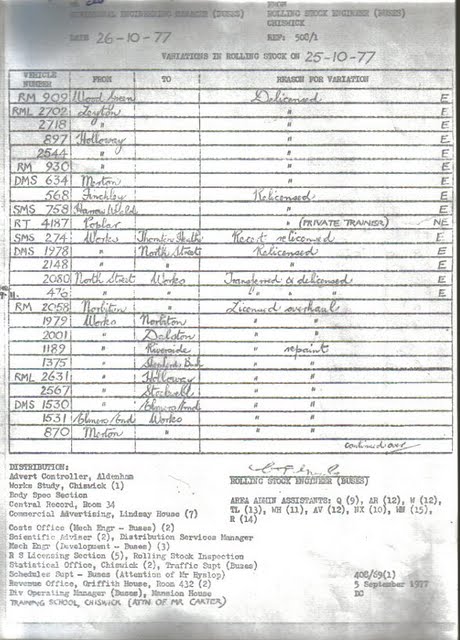 FROM
ENGINEERING MANAGER (BUSES) ROLLING STOCK ENGINEER (BUSES)
CHISWICK
DATE 26-10-77 REF: 508/1
VARIATIONS IN ROLLING STOCK ON 25-10-77
VEHICLE NUMBER FROM TO REASON FOR VARIATION
RM 909 Wood Green Delicensed E
RML 2702 Leyton " E
2718 " " E
897 Holloway " E
2544 " " E
RM 930 " " E
DMS 634 Merton " E
568 Finchley Relicensed E
SMS 758 Harrow Weald " E
RT 4187 Poplar " (PRIVATE TRAINER) NE
SMS 274 Works Thornton Heath Recert relicensed E
DMS 1978 " North Street Relicensed E
2148 " " " E
2080 North Street Works Transferred & delicensed E
476 " " " " " E
RM 2058 Norbiton " Licensed overhaul
1979 Works Norbiton " "
2001 " Dalston " "
1189 " Riverside " repaint
1375 " Shepherds Bush " "
RML 2631 " Holloway " "
2567 " Stockwell " "
DMS 1530 " Elmers End " "
1531 Elmers End Works " "
870 Merton " " "
continued over
DISTRIBUTION:
Advert Controller, Aldenham
Works Study, Chiswick (1)
Body Spec Section
Central Record, Room 34
Commercial Advertising, Lindsay House (7)
Costs Office (Mech Engr - Buses) (2)
Scientific Adviser (2), Distribution Services Manager
Mech Engr (Development - Buses) (3)
R S Licensing Section (5), Rolling Stock Inspection
Statistical Office, Chiswick (2), Traffic Supt (Buses)
Schedules Supt - Buses (Attention of Mr Hyslop)
Revenue Office, Griffith House, Room 432 (2)
Div Operating Manager (Buses), Mansion House
TRAINING SCHOOL, CHISWICK (ATTN. OF MR CARTER)
ROLLING STOCK ENGINEER (BUSES)
AREA ADMIN ASSISTANTS: Q (9), AR (12), W (12),
TL (13), WH (11), AV (12), NX (10), HW (15),
R (14)
408/69(1)
5 September 1977
DC